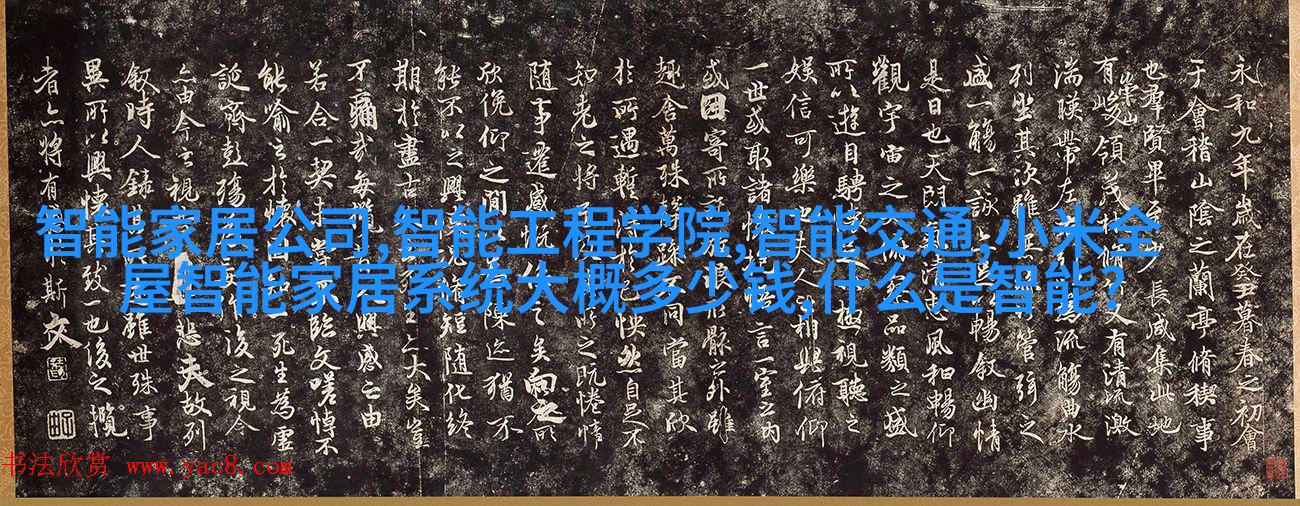 智能家居公司,智能工程学院,智能交通,小米全
屋智能家居系统大概多少钱,什么是智能?
永和九年歲在癸丑暮春之初會
于會稽山陰之蘭亭脩禊事
也羣賢畢至少長咸集此地
有崇山峻領茂又有清流激
湍暎帶左引流觴曲水
列坐其次雖無管弦之
盛一觴一詠亦暢敘幽情
是日也天朗清惠風和暢仰
觀宇宙之品類之盛
所以遊目騁極視聽之
娛信可樂也夫人相與俯仰
一世或取諸懷言一室之內
或因寄所浪形骸之外雖
趣舍萬殊靜躁同當其欣
於所遇蹔怏然自足不
知老之將所之既惓情
隨事遷感慨之矣向之所
欣俛仰之間陳迹猶不
能不以之興短隨化終
期於盡古大矣豈
不痛哉每興感之由
若合一契未嘗臨文嗟悼不
能喻之於懷一死生為虛
誕齊彭殤作後之視今
亦由今之視悲夫故列
敘時人錄雖世殊事
異所以興懷其致一也後之攬
者亦將有斯文
书法欣赏 www.yac8.com